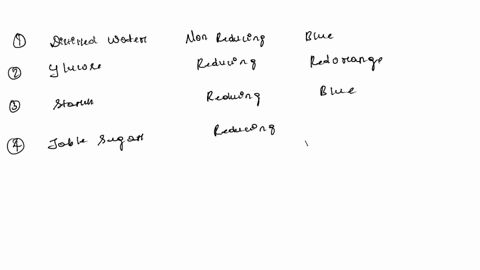 ① Distilled Water Non Reducing Blue
② Glucose Reducing Red orange
③ Starch Reducing Blue
④ Table Sugar Reducing